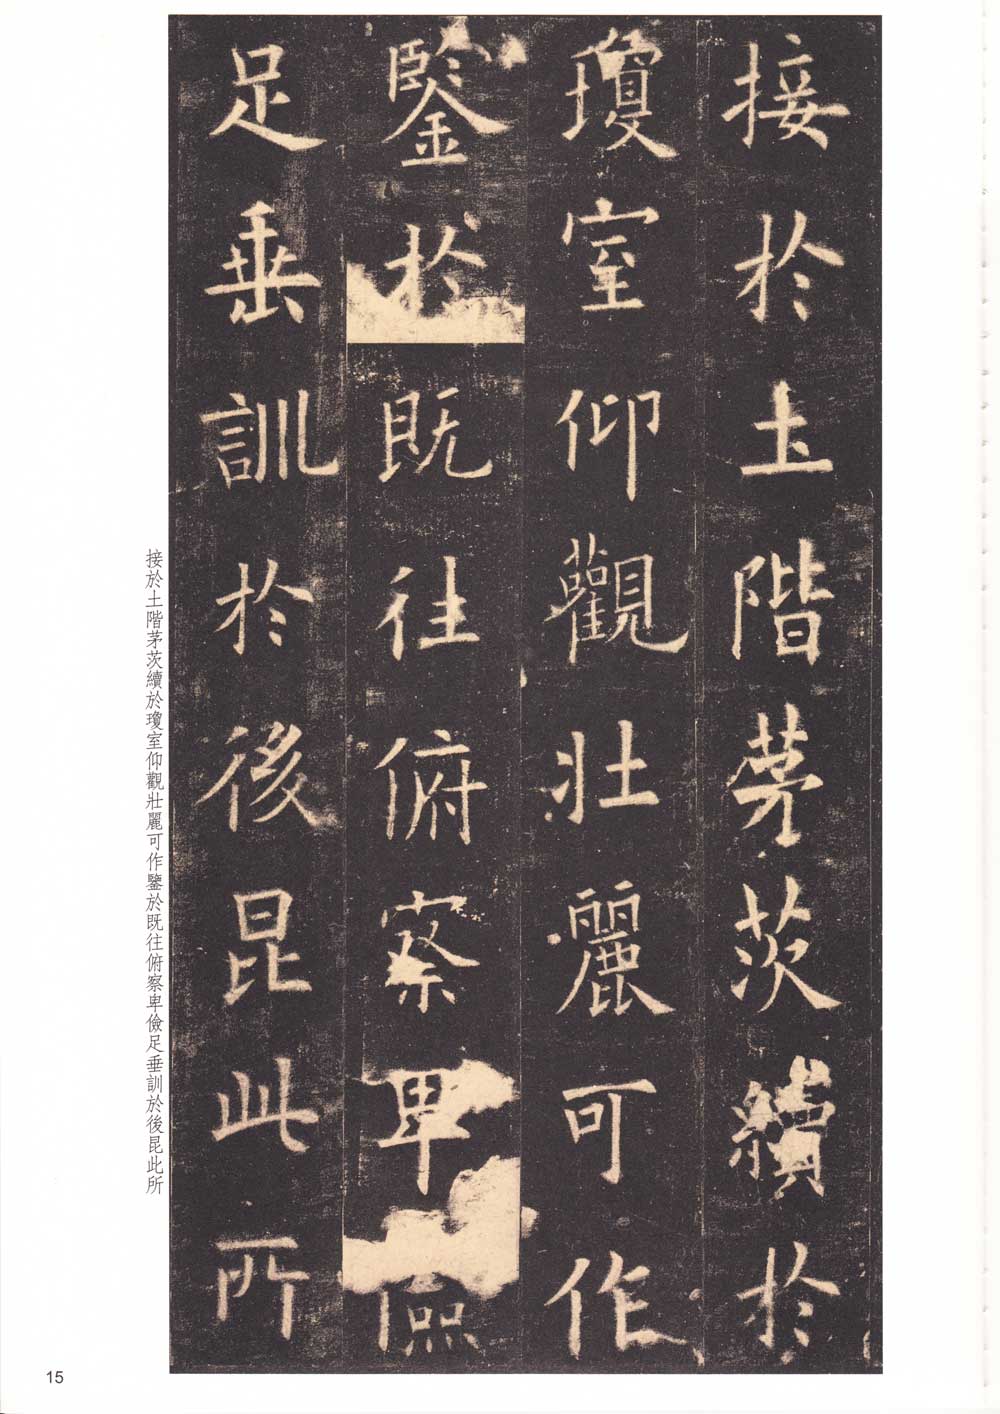 接於土階茅茨續於
瓊室仰觀壯麗可作
鑒於既往俯察卑儉
足垂訓於後昆此所
接於土階茅茨續於瓊室仰觀壯麗可作鑒於既往俯察卑儉足垂訓於後昆此所
15